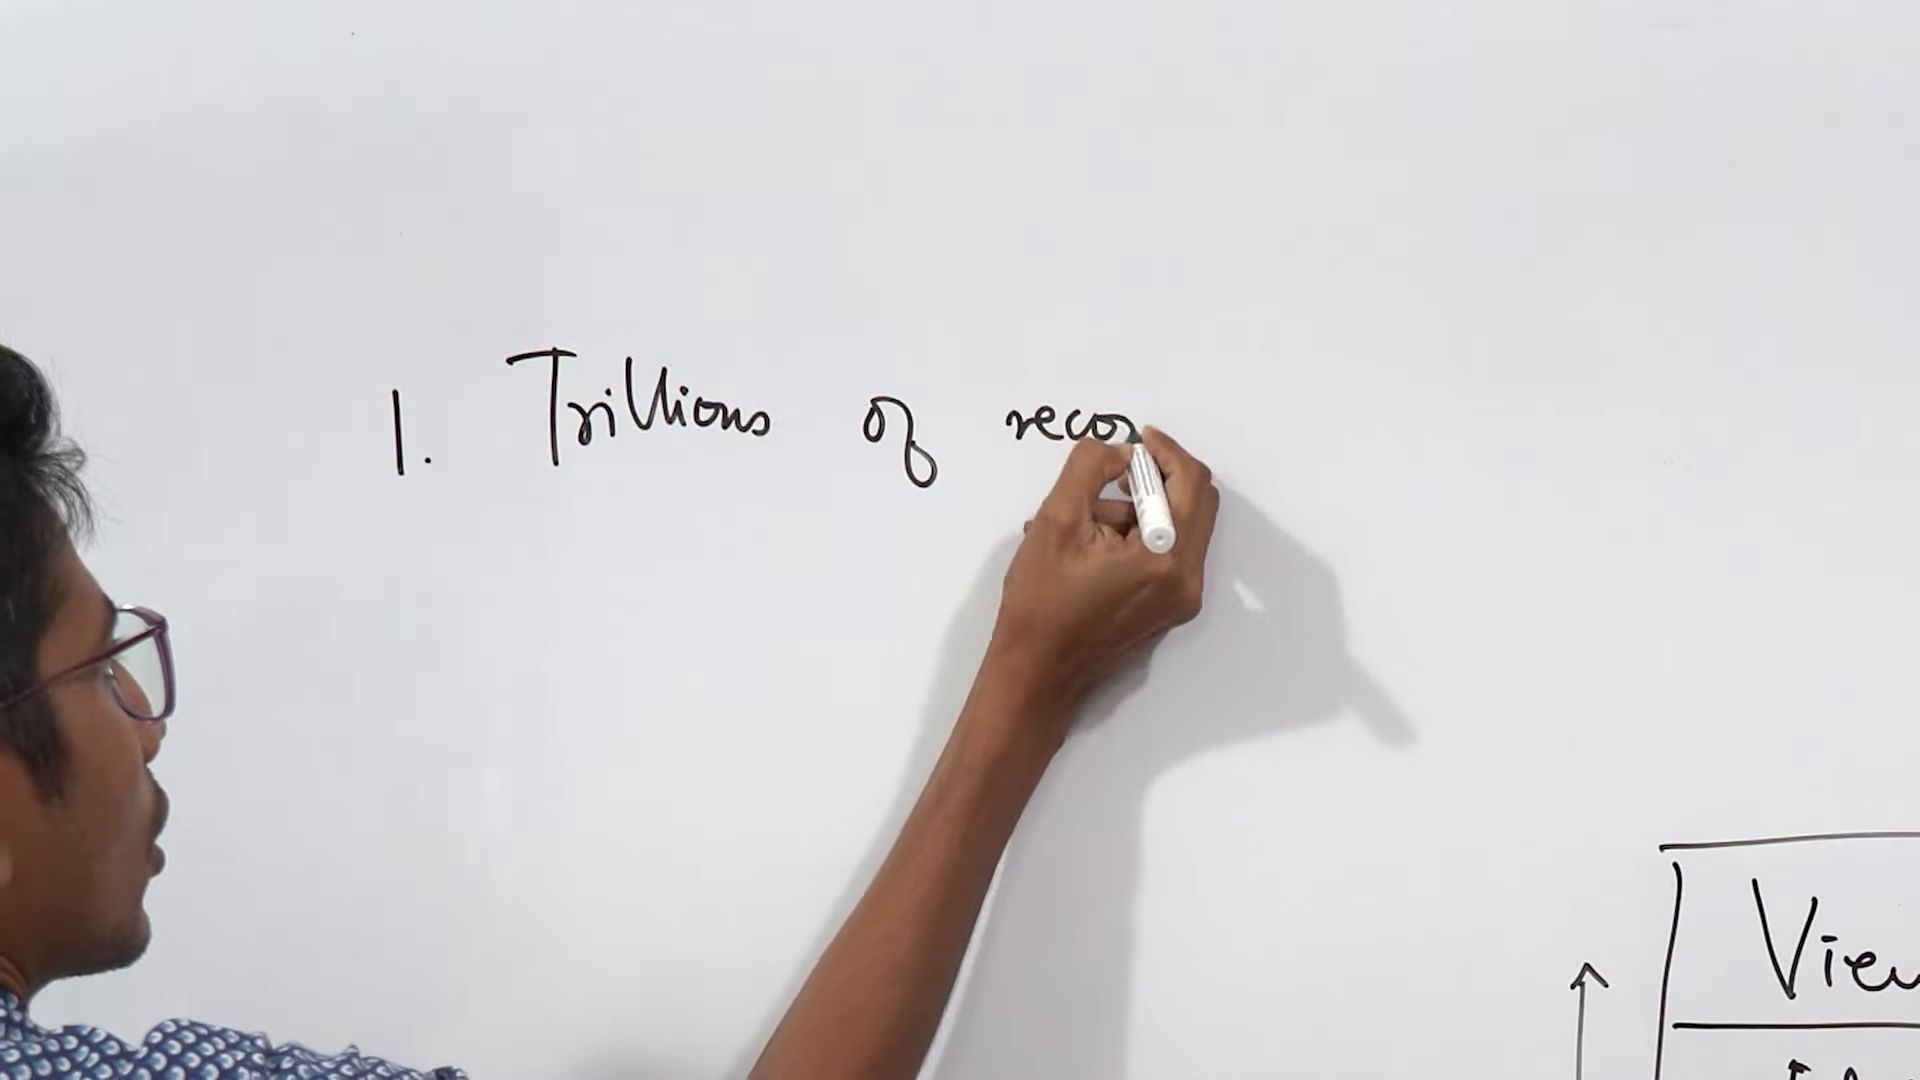 1. Trillions of recor
View